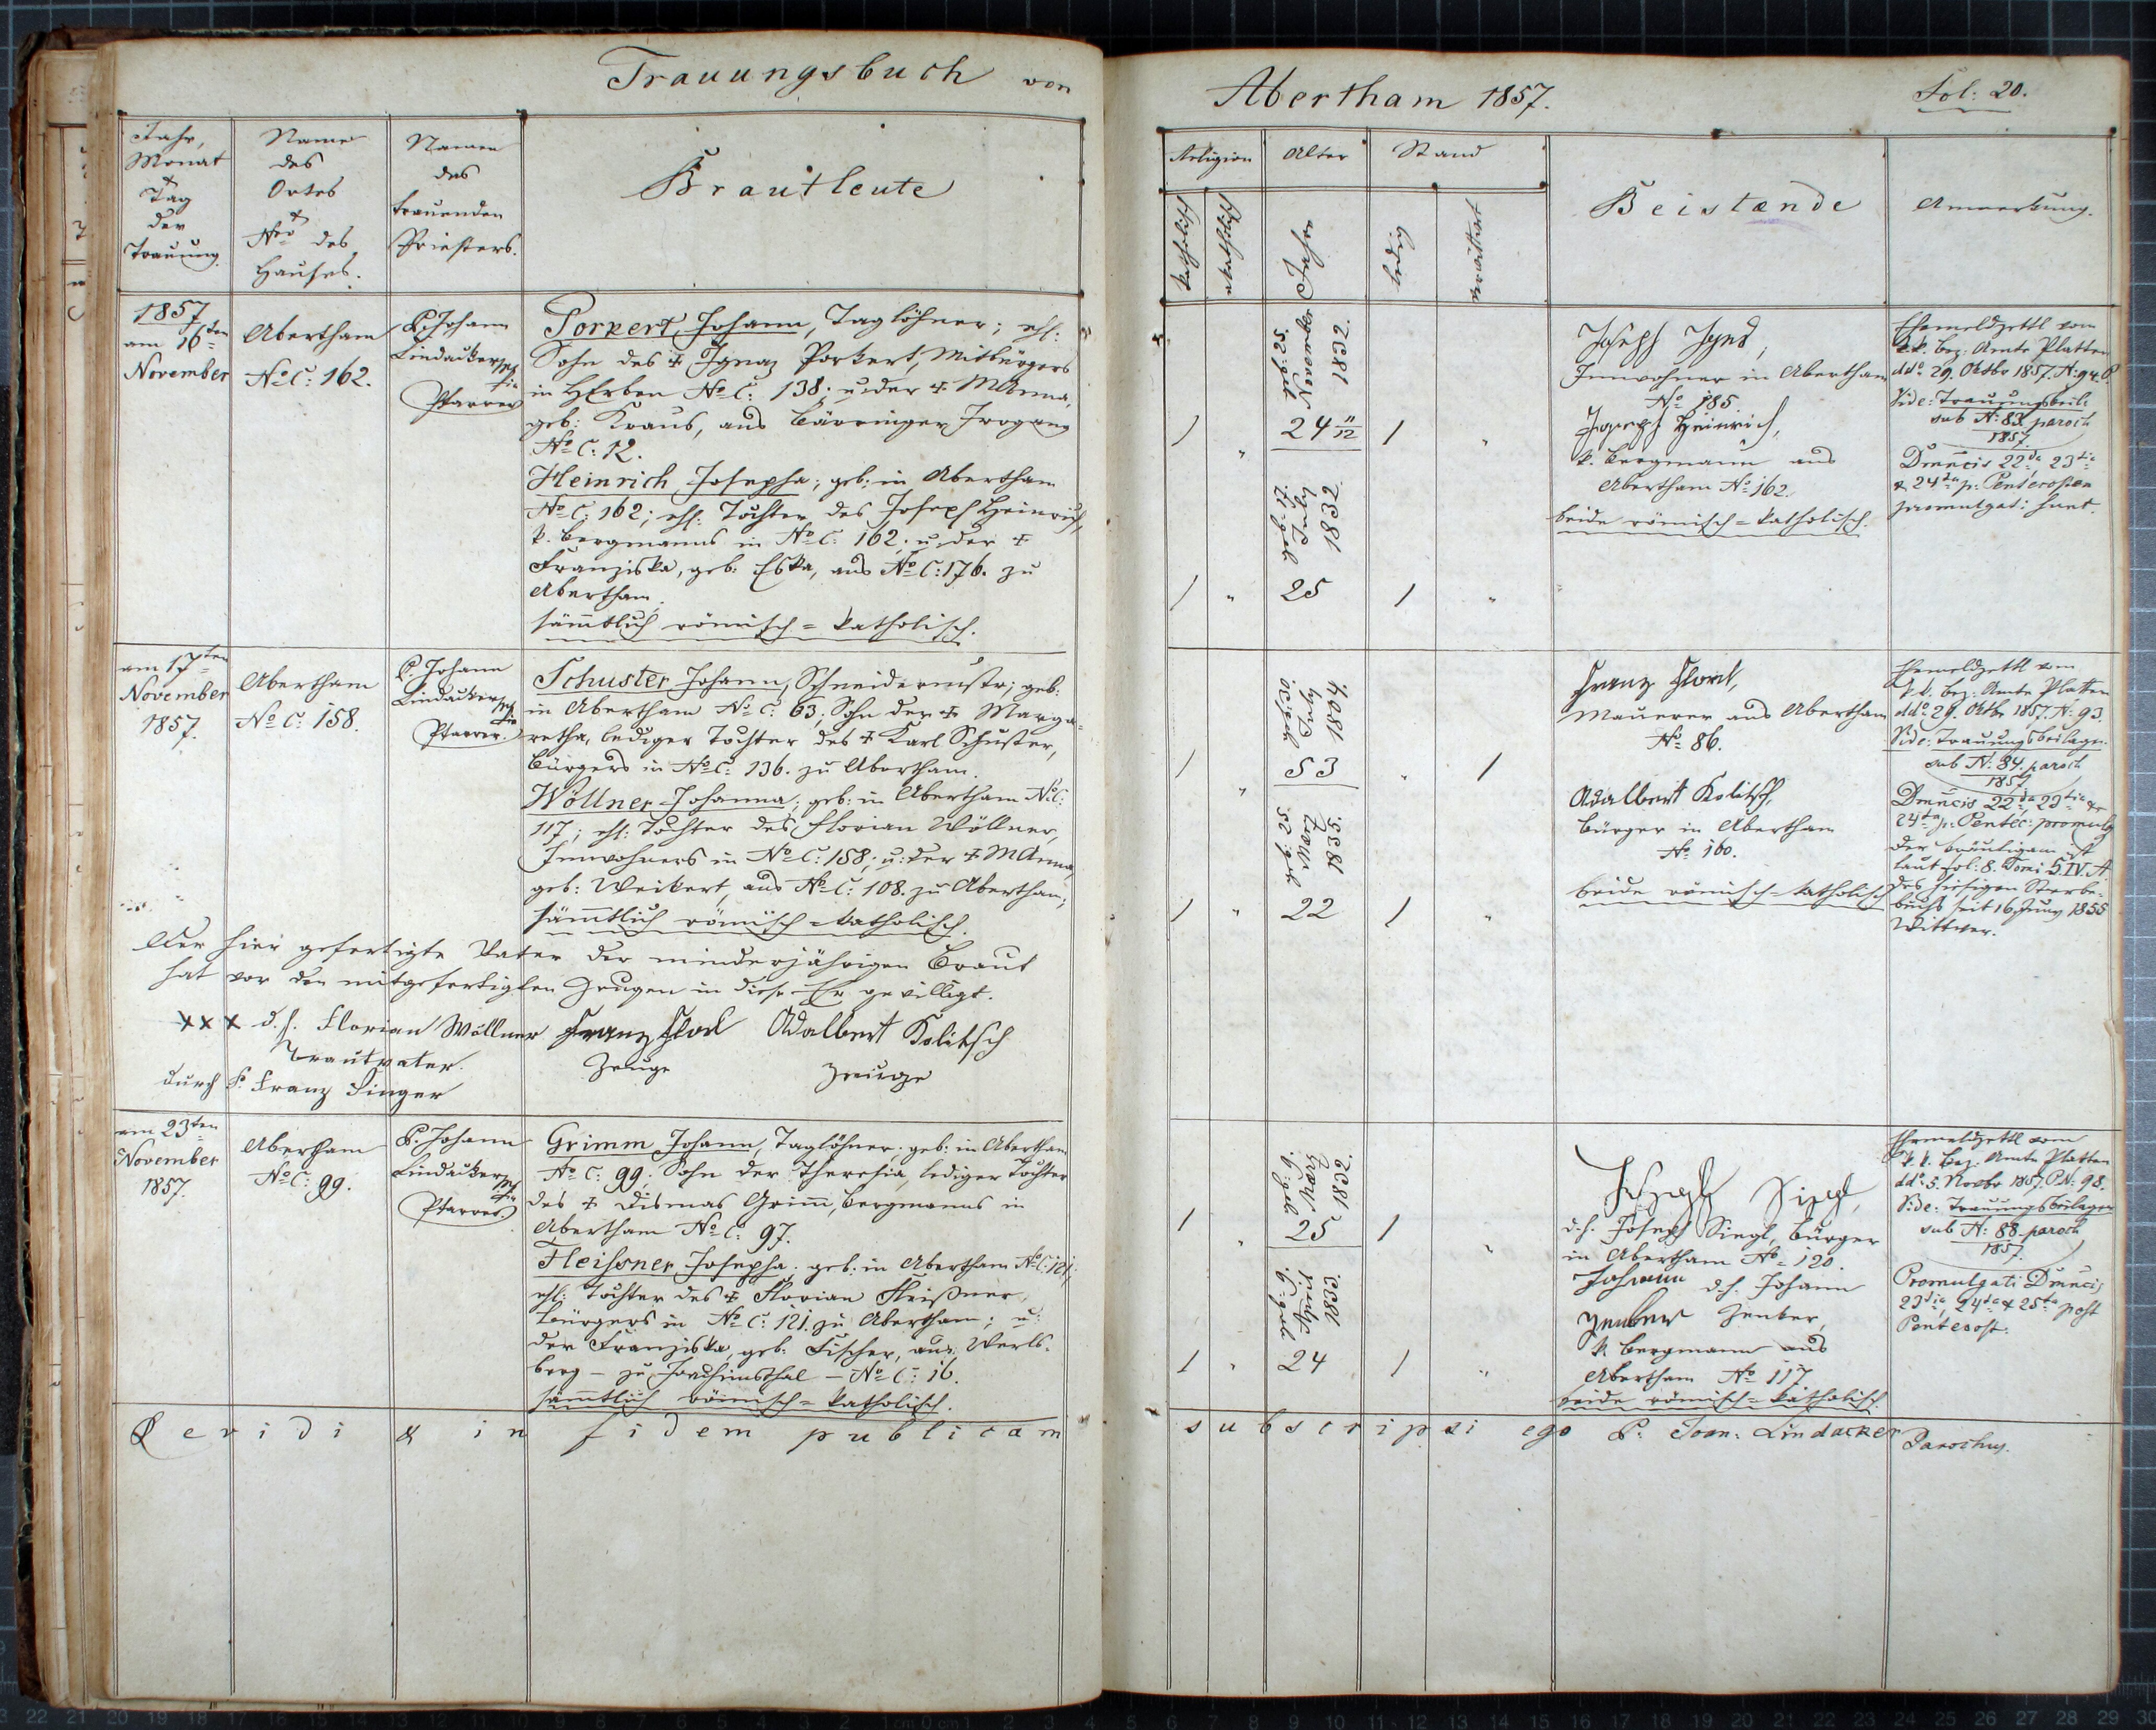 Trauungsbuch von
Abertham 1857.
Fol: 20.
Jahr,
Monat
&
Tag
der
Trauung.
Name
des
Ortes
&
Nro des
Hauses.
Namen
des
trauenden
Priesters.
Brautleute
Religion
Alter
Stand
katholisch
Jahre
ledig
verwittwet
Beistænde
Anmerkung.
1857
am 16ten
November
Abertham
No C: 162.
P. Johann
Lindacker
Pfarrer
Porkert Johann, Taglöhner; ehl:
Sohn des + Ignaz Porkert, Mitbürgers
in No C: 138; u: der + M Anna,
geb: Kraus, aus Bärringer
No C: 12.
Heinrich Josepha; geb: in Abertham
No C: 162; ehl: Tochter des Joseph Heinrich,
k. Bergmanns in No C: 162; u: der +
Franziska, geb: Eska, aus No C: 176. zu
Abertham,
sämtlich römisch=katholisch.
1832.
November
geb: 25
1 " 24 11/12 1 "
1832
July
geb: 17
1 " 25 1 "
Joseph
Innwohner in Abertham
No 185
Joseph Heinrich,
k. Bergmann aus
Abertham No 162.
beide römisch=katholisch.
Ehemeldzettl vom
k.k. Bez. Amte Platten
ddo 29. Oktbr 1857. N: 94.
Vide: Trauungsbeil:
sub N: 83. paroch
1857.
Dmncis 22da, 23tia
& 24ta p: Pentecosten
promulgati sunt.
am 17ten
November
1857.
Abertham
No C: 158.
P. Johann
Lindacker
Pfarrer.
Schuster Johann, Schneidermstr; geb:
in Abertham No C: 63; Sohn der + Marga=
retha, lediger Tochter des + Karl Schuster,
Bürgers in No C: 136. zu Abertham.
Wöllner Johanna; geb: in Abertham No C:
117; ehl: Tochter des Florian Wöllner,
Innwohners in No C: 158; u: der + M Anna,
geb: Weikert, aus No C: 108. zu Abertham;
sämtlich römisch=katholisch.
1804
July
1 " 53 " 1
1835
März
geb: 25
1 " 22 1 "
Franz
Maurer aus Abertham
No 86.
Adalbert Kolitsch,
Bürger in Abertham
No 160.
beide römisch=katholisch
Ehemeldzettl vom
k.k. Bez. Amte Platten
ddo 29. Oktbr 1857. N: 93.
Vide: Trauungsbeilagen
sub N: 84. paroch
1857.
Dmncis 22da, 23tia &
24ta p: Pentec: promulg
Der Bräutigam ist
laut fol: 8. Tomi IV. A
des hiesigen Sterbe=
buchs seit 16 Juny 1855
Wittwer.
Der hier gefertigte Vater der minderjährigen Braut
hat vor den mitgefertigten Zeugen in diese Ehe gewilligt.
xxx d. h. Florian Wöllner Franz Adalbert Kolitsch
Brautvater. Zeuge Zeuge
durch P. Franz Singer
am 23ten
November
1857.
Abertham
No C: 99.
P. Johann
Lindacker
Pfarrer.
Grimm Johann, Taglöhner; geb: in Abertham
No C: 99; Sohn der Theresia, lediger Tochter
des + Dismas Grimm, Bergmanns in
Abertham No C: 97.
Fleissner Josepha; geb: in Abertham No C: 121;
ehl: Tochter des + Florian Fleißner,
Bürgers in No C: 121. zu Abertham; u:
der Franziska, geb: Fischer, aus Werls=
berg – zu Joachimsthal – No C: 16.
sämtlich römisch=katholisch.
1832.
März
1 " 25 1 "
1833
April
1 " 24 1 "
Joseph Siegl,
d. h. Joseph Siegl, Bürger
in Abertham No 120.
Johann d. h. Johann
Zenker Zenker,
k. Bergmann aus
Abertham No 117
beide römisch=katholisch.
Ehemeldzettl vom
k.k. Bez. Amte Platten
ddo 5. Novbr 1857. N: 98.
Vide: Trauungsbeilagen
sub N: 88. paroch
1857.
Promulgati Dmncis
23tia, 24ta & 25ta post
Pentecost.
Legi di & in fidem publicam subscripsi ego P. Joan: Lindacker Parochus.